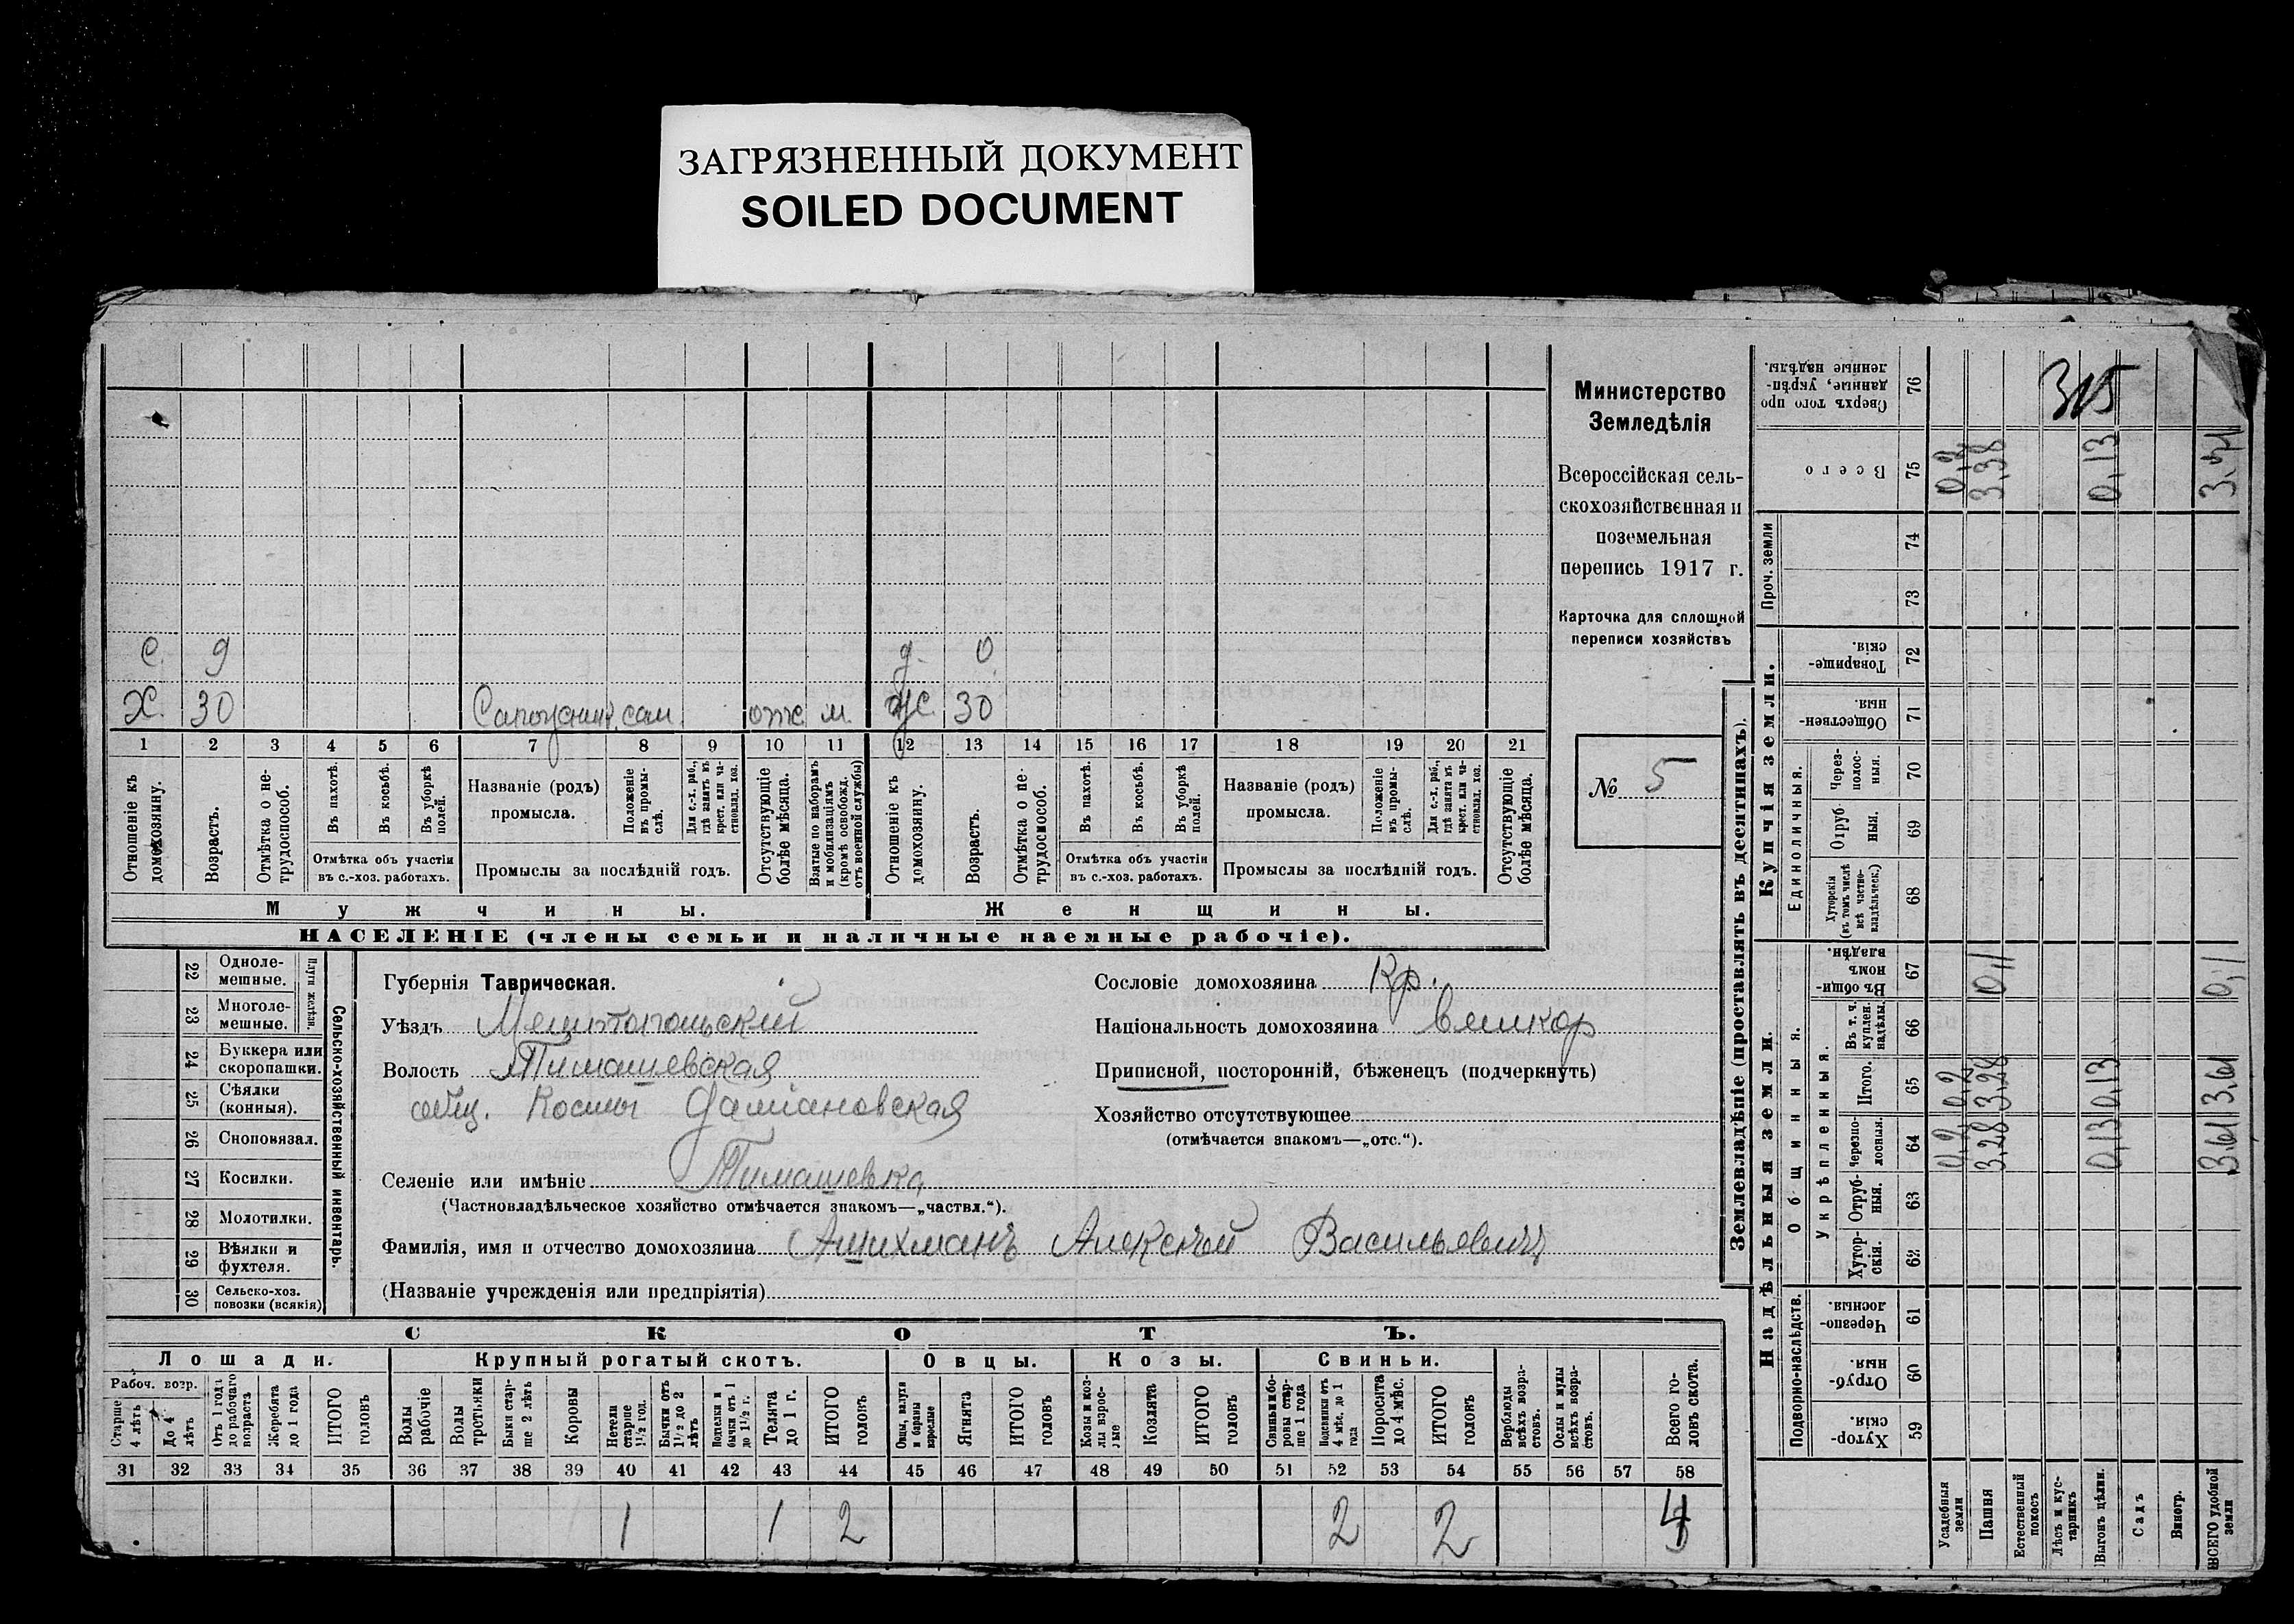 ЗАГРЯЗНЕННЫЙ ДОКУМЕНТ
SOILED DOCUMENT
Министерство
Земледѣлія
Всероссійская сель-
скохозяйственная и
поземельная
перепись 1917 г.
Карточка для сплошной
переписи хозяйствъ
№ 5
с. 9 д. 0
Х. 30 сам. отс. м. Ж. 30
1 2 3 4 5 6 7 8 9 10 11 12 13 14 15 16 17 18 19 20 21
Отношеніе къ домохозяину.
Возрастъ.
Отмѣтка о не-трудоспособ.
Въ пахотѣ.
Въ косьбѣ.
Въ уборкѣ полей.
Отмѣтка объ участіи
въ с.-хоз. работахъ.
Названіе (родъ)
промысла.
Положеніе въ промы-слѣ.
Для с.-х. раб., гдѣ занятъ въ крест. или ча-стновлад. хоз.
Промыслы за послѣдній годъ.
Отсутствующіе болѣе мѣсяца.
Взятые по наборамъ и мобилизаціямъ (кромѣ освобожд. отъ военной службы)
Отношеніе къ домохозяину.
Возрастъ.
Отмѣтка о не-трудоспособ.
Въ пахотѣ.
Въ косьбѣ.
Въ уборкѣ полей.
Отмѣтка объ участіи
въ с.-хоз. работахъ.
Названіе (родъ)
промысла.
Положеніе въ промы-слѣ.
Для с.-х. раб., гдѣ занята въ крест. или ча-стновлад. хоз.
Промыслы за послѣдній годъ.
Отсутствующіе болѣе мѣсяца.
Мужчины. Женщины.
НАСЕЛЕНІЕ (члены семьи и наличные наемные рабочіе).
22 Одноле-мешные.
23 Многоле-мешные.
Плуги желѣзн.
24 Буккера или скоропашки.
25 Сѣялки (конныя).
26 Сноповязал.
27 Косилки.
28 Молотилки.
29 Вѣялки и фухтеля.
30 Сельско-хоз. повозки (всякія)
Сельско-хозяйственный инвентарь.
Губернія Таврическая.
Уѣздъ Мелитопольскій
Волость Тимашевская
общ. Космы Даміановская
Селеніе или имѣніе Тимашевка
(Частновладѣльческое хозяйство отмѣчается знакомъ—„частвл.“).
Фамилія, имя и отчество домохозяина Ашихманъ Алексѣй Васильевичъ
(Названіе учрежденія или предпріятія)
Сословіе домохозяина Кр.
Національность домохозяина великор
Приписной, посторонній, бѣженецъ (подчеркнуть)
Хозяйство отсутствующее
(отмѣчается знакомъ—„отс.“).
СКОТЪ.
Лошади. Крупный рогатый скотъ. Овцы. Козы. Свиньи.
Рабоч. возр.
Старше 4 лѣтъ
До 4 лѣтъ
Отъ 1 года до рабочаго возраста
Жеребята до 1 года
ИТОГО головъ
Волы рабочіе
Волы третьяки
Быки стар-ше 2 лѣтъ
Коровы
Нетели старше 1½ год.
Бычки отъ 1½ до 2 лѣтъ
Телки и бычки отъ 1 до 1½ г.
Телята до 1 г.
ИТОГО головъ
Овцы, валухи и бараны взрослые
Ягнята
ИТОГО головъ
Козы и коз-лы взрос-лые
Козлята
ИТОГО головъ
Свиньи и бо-ровы стар-ше 1 года
Подсвинки отъ 4 мѣс. до 1 года
Поросята до 4 мѣс.
ИТОГО головъ
Верблюды всѣхъ возра-стовъ.
Ослы и мулы всѣхъ возра-стовъ.
Всего го-ловъ скота.
31 32 33 34 35 36 37 38 39 40 41 42 43 44 45 46 47 48 49 50 51 52 53 54 55 56 57 58
1 1 2 2 2 4
Землевладѣніе (проставлять въ десятинахъ).
Надѣльныя земли. Купчія земли.
Подворно-наслѣдств.
Общинныя.
Укрѣпленныя.
Единоличныя.
Проч. земли
Сверхъ того про-данные, укрѣп-ленные надѣлы. 76 315
Всего 75 0,2 3,38 0,13
74
73
Товарище-скія. 72
Обществен-ныя. 71
Через-полос-ныя. 70
Отруб-ныя. 69
Хуторскія (въ томъ числѣ всѣ частно-владѣльческ.) 68
Въ общи-номъ владѣн. 67 0,1 0,1
Въ т. ч. куплен. надѣлы. 66
Итого. 65 0,2 3,28 0,13 3,61
Черезпо-лосныя. 64 0,2 3,28 0,13 3,61
Отруб-ныя. 63
Хутор-скія. 62
Черезпо-лосныя. 61
Отруб-ныя. 60
Хутор-скія. 59
Усадебныя земли
Пашня
Естественный покосъ
Лѣсъ и кус-тарникъ
Выгонъ цѣлин.
Садъ
Виногр.
ВСЕГО удобной земли